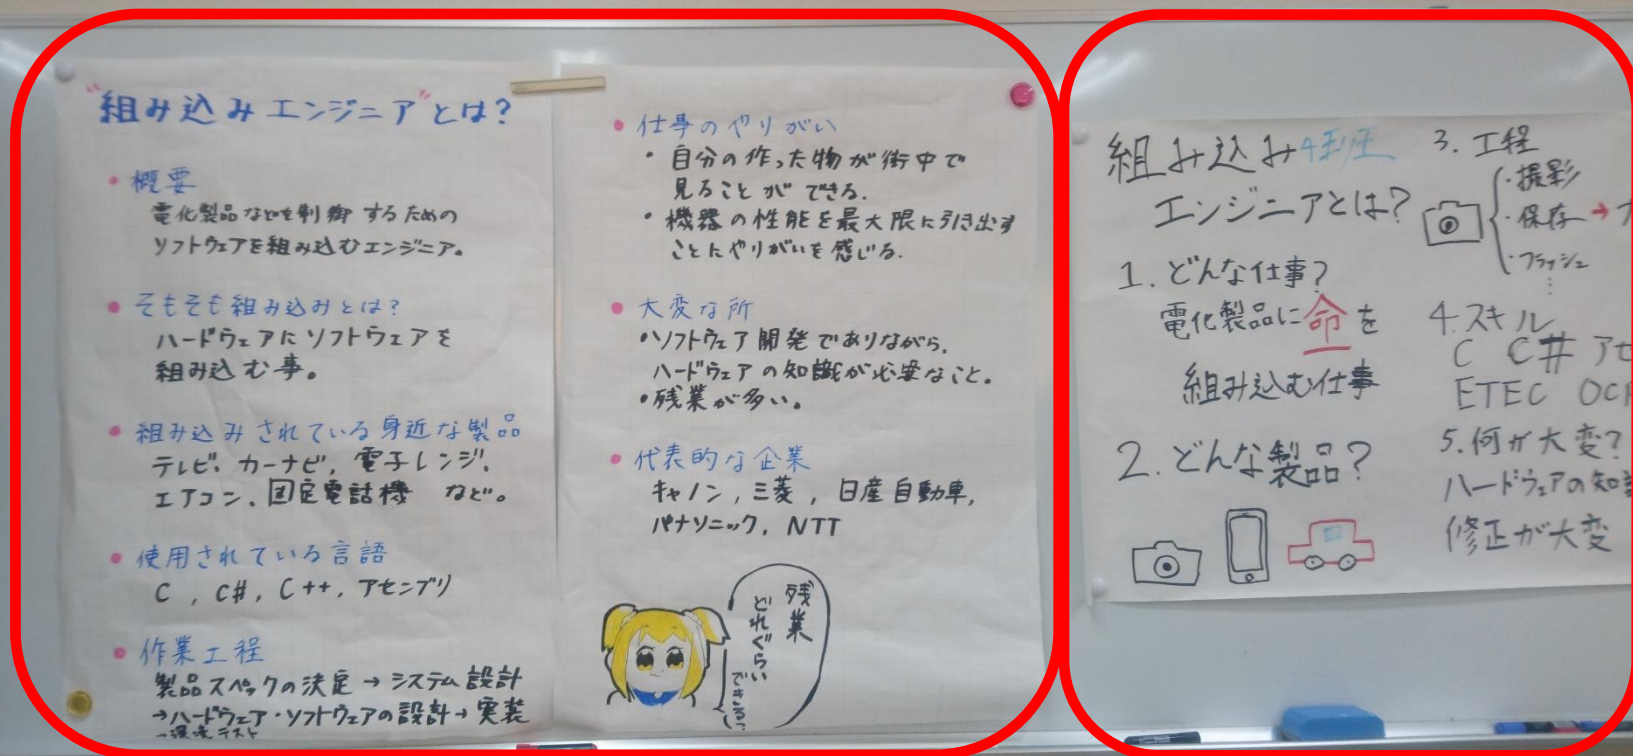 "組み込みエンジニア"とは?
・概要
電化製品などを制御するための
ソフトウェアを組み込むエンジニア。
・そもそも組み込みとは?
ハードウェアにソフトウェアを
組み込む事。
・組み込みされている身近な製品
テレビ、カーナビ、電子レンジ、
エアコン、固定電話機 など。
・使用されている言語
C , C#, C++, アセンブリ
・作業工程
製品スペックの決定→システム設計
→ハードウェア・ソフトウェアの設計→実装
→環境テスト
・仕事のやりがい
・自分の作った物が街中で
見ることができる.
・機器の性能を最大限に引き出す
ことにやりがいを感じる.
・大変な所
・ソフトウェア開発でありながら、
ハードウェアの知識が必要なこと。
・残業が多い。
・代表的な企業
キャノン, 三菱, 日産自動車,
パナソニック, NTT
残業
どれぐらい
組み込み 4班
エンジニアとは?
1. どんな仕事?
電化製品に命を
組み込む仕事
2. どんな製品?
3. 工程
・撮影
・保存→
・フラッシュ
⋮
4. スキル
C C# アセ
ETEC
5. 何が大変?
ハードウェアの知
修正が大変